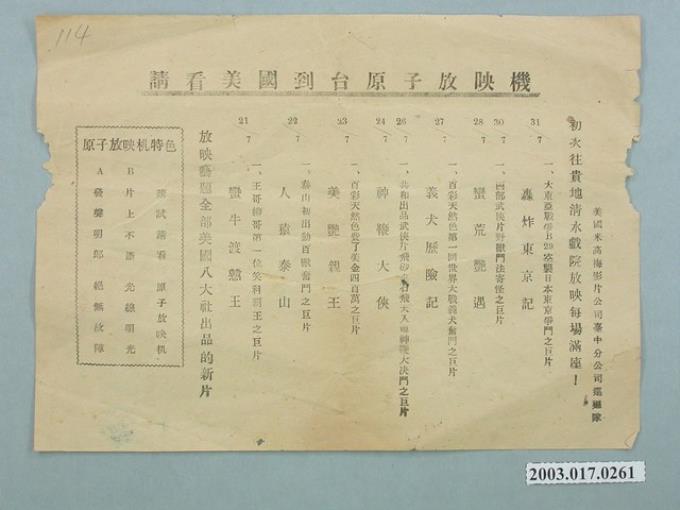 114
請看美國到台原子放映機
美國米高梅影片公司臺中分公司巡迴隊
初次往貴地清水戲院放映每場滿座！
31
7
一、大東亞戰爭B29空襲日本東京爭鬥之巨片
轟炸東京記
30
7
一、西部武俠片野獸鬥法寄怪之巨片
28
7
蠻荒艷遇
一、百彩天然色第一回世界大戰義犬奮鬥之巨片
27
7
義犬歷險記
26
7
一、共和出品武俠片飛砂走石飛天入與神鞭大決鬥之巨片
24
7
神鞭大俠
一、百彩天然色費了美金四百萬之巨片
23
7
美艷親王
一、泰山初出動百獸奮鬥之巨片
22
7
人猿泰山
一、王哥柳哥第一位笑科覇王之巨片
21
7
蠻牛渡戇王
放映藝題全部美國八大社出品的新片
原子放映机特色
請試請看 原子放映机
B 片上不添 光線明光
A 發聲明郎 絕無故障
2003.017.0261